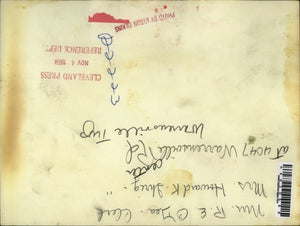 Mr. R. E. O'Dea. Clerk
Mrs Howard K
at 4047 Warrensville
Center Rd
Warrensville Twp
CLEVELAND PRESS
NOV 4 1958
REFERENCE DEPT.
PHOTO BY BYRON